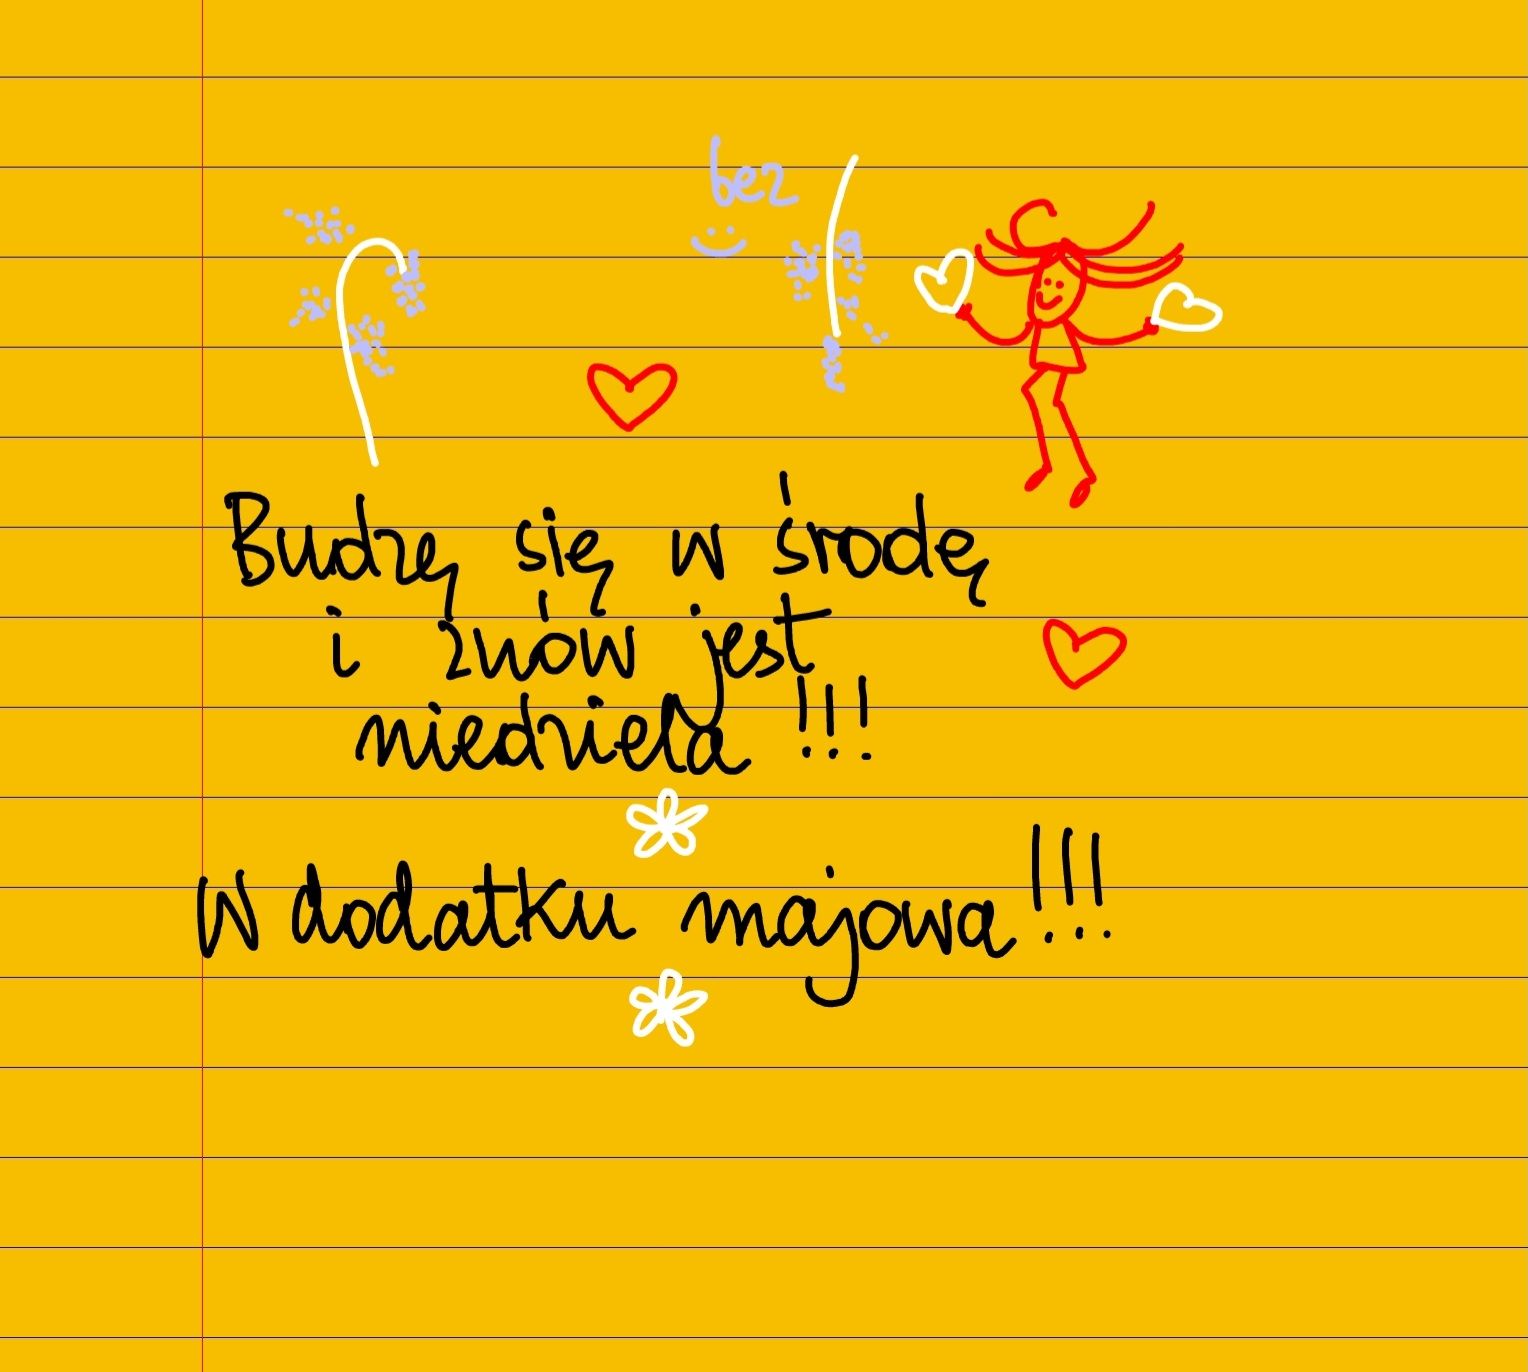 bez
Budzę się w środę
i znów jest
niedziela !!!
W dodatku majowa!!!